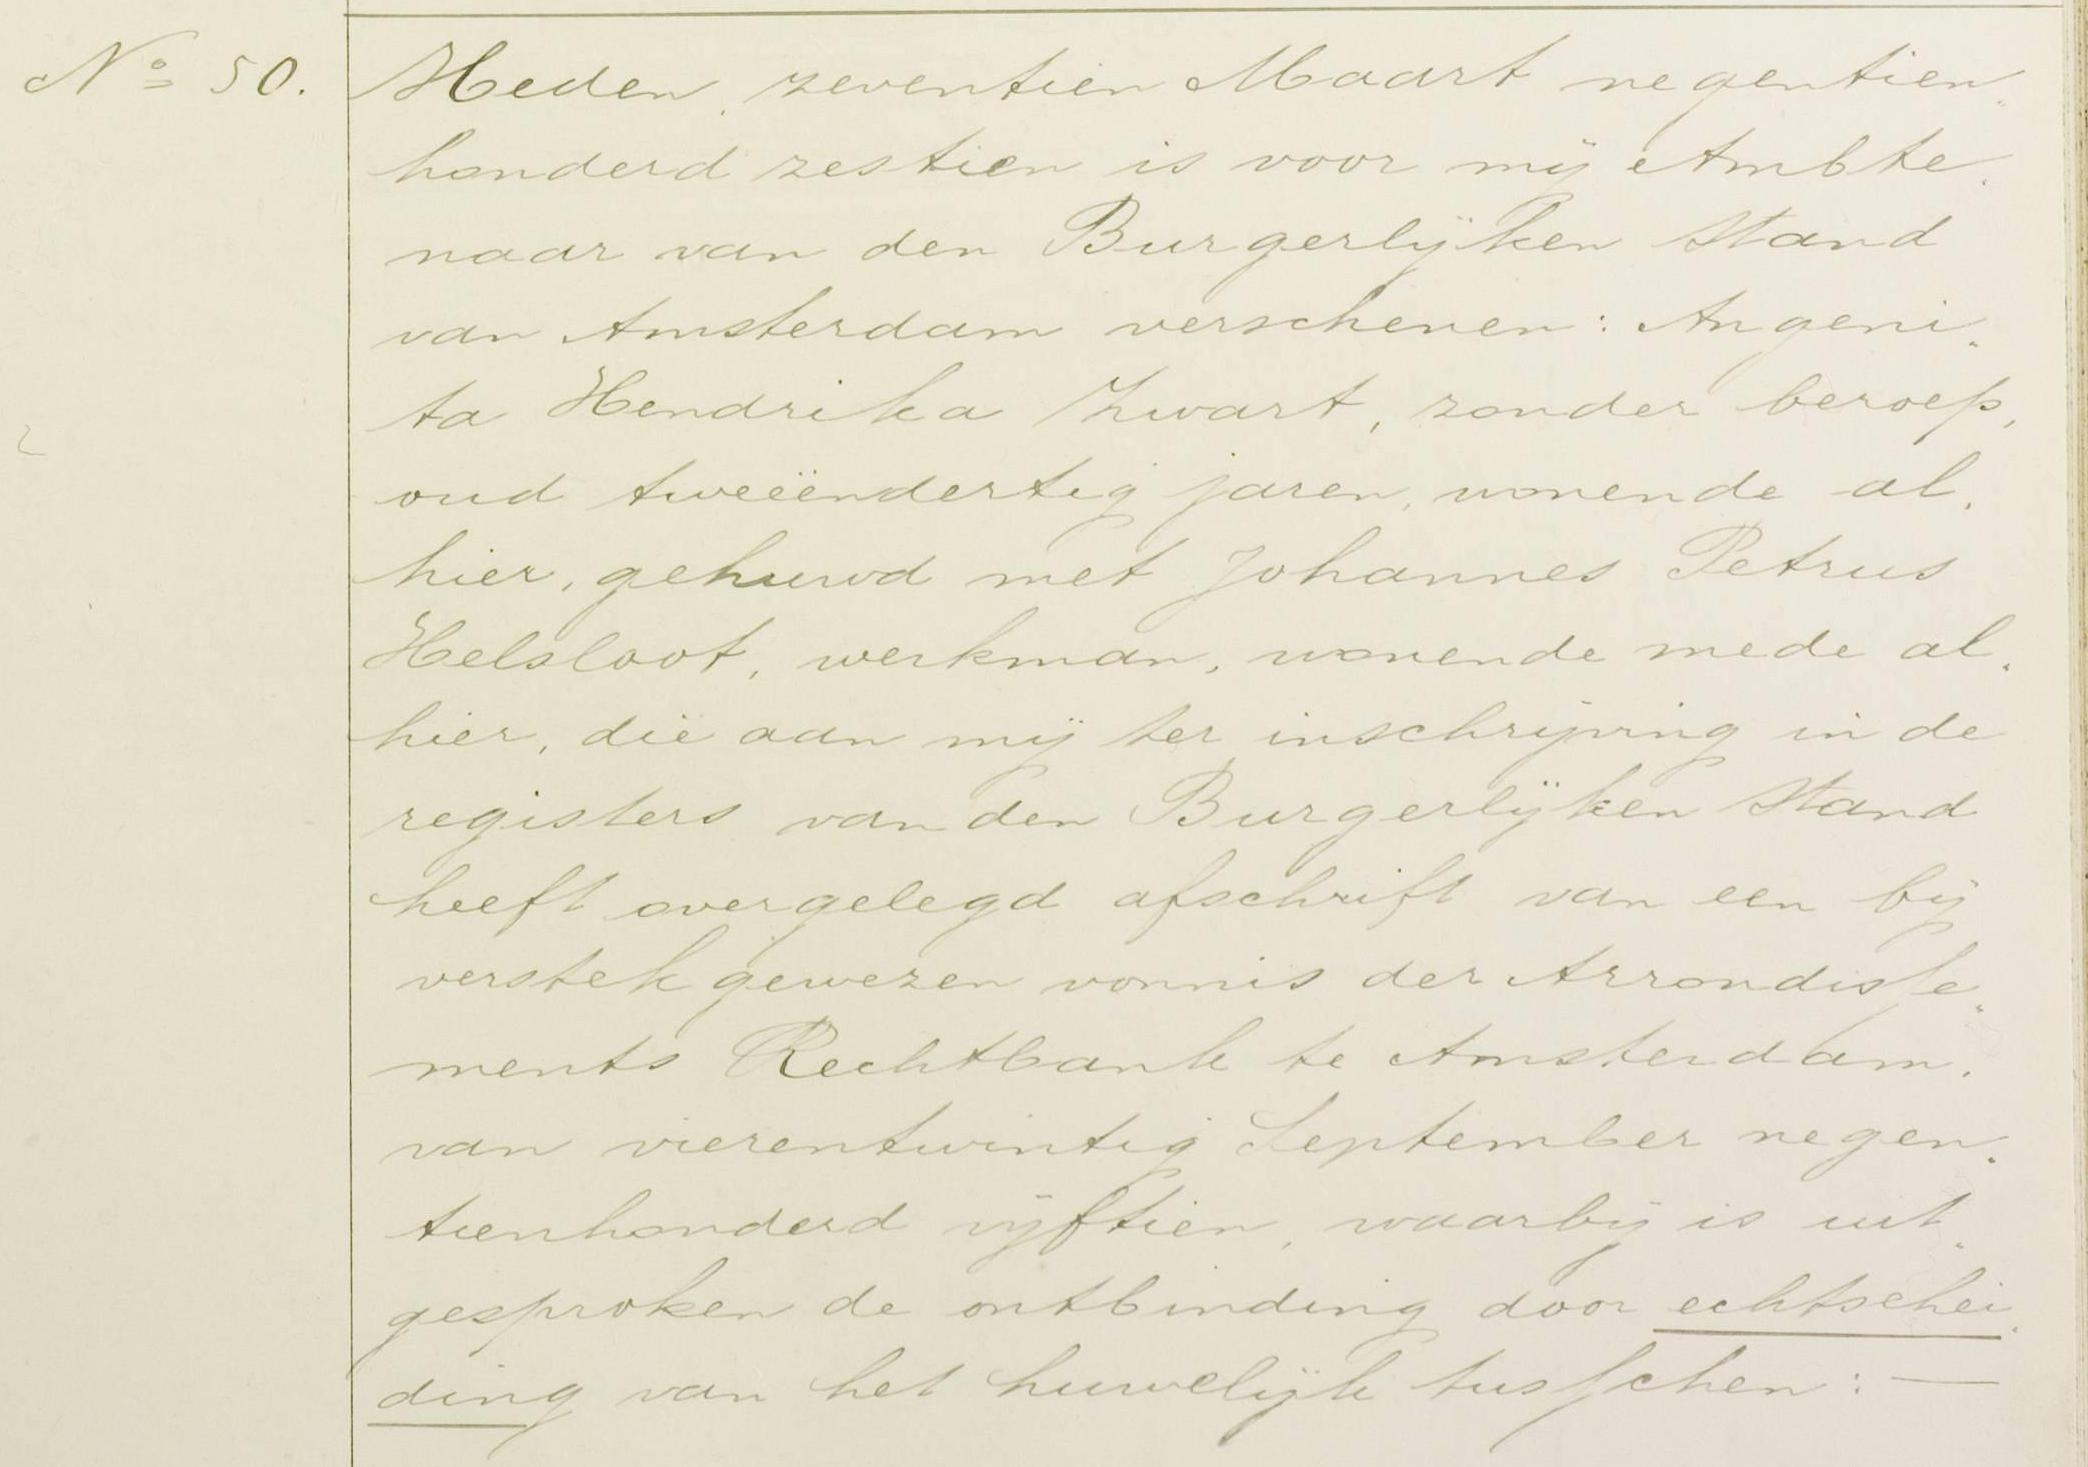 No 50.
Heden, zeventien Maart negentien„
honderd zestien is voor mij Ambte„
naar van den Burgerlijken Stand
van Amsterdam verschenen: Angeni„
ta Hendrika Zwart, zonder beroep,
oud tweeëndertig jaren, wonende al„
hier, gehuwd met Johannes Petrus
Helsloot, werkman, wonende mede al„
hier, die aan mij ter inschrijving in de
registers van den Burgerlijken Stand
heeft overgelegd afschrift van een bij
verstek gewezen vonnis der Arrondisse„
ments Rechtbank te Amsterdam,
van vierentwintig September negen„
tienhonderd vijftien, waarbij is uit„
gesproken de ontbinding door echtschei„
ding van het huwelijk tusschen: —